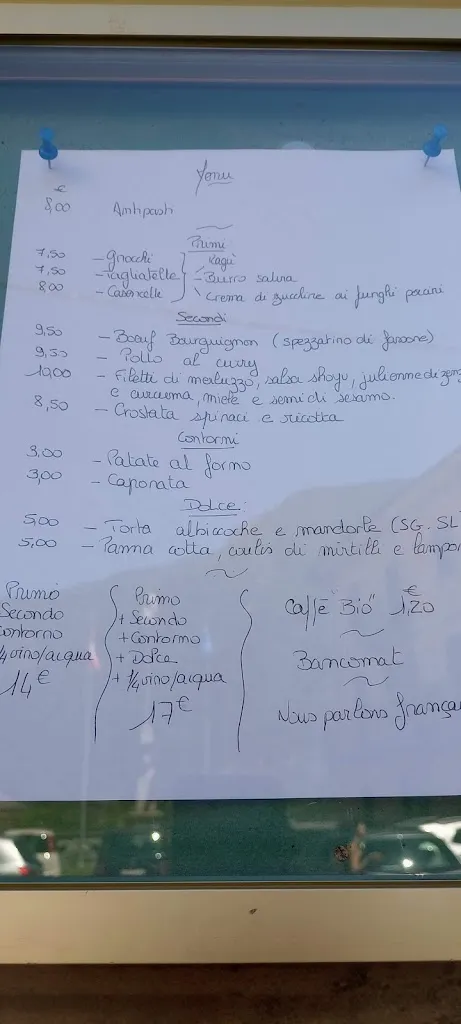 Menu
€
8,00 Antipasti
Primi
7,50 - Gnocchi Ragù
7,50 - Tagliatelle - Burro salvia
8,00 - Casoncelle Crema di zucchine ai funghi porcini
Secondi
9,50 - Boeuf Bourguignon (spezzatino di fassone)
9,50 - Pollo al curry
10,00 - Filetti di merluzzo, salsa shoyu, julienne di zenz
e curcuma, miele e semi di sesamo.
8,50 - Crostata spinaci e ricotta
Contorni
3,00 - Patate al forno
3,00 - Caponata
Dolce:
5,00 - Torta albicocche e mandorle (SG. SL
5,00 - Panna cotta, coulis di mirtilli e lampon
Primo
Secondo
Contorno
1/4 vino/acqua
14€
Primo
+ Secondo
+ Contorno
+ Dolce
+ 1/4 vino/acqua
17€
Caffè "Bio" 1,20 €
Bancomat
Nous parlons françai